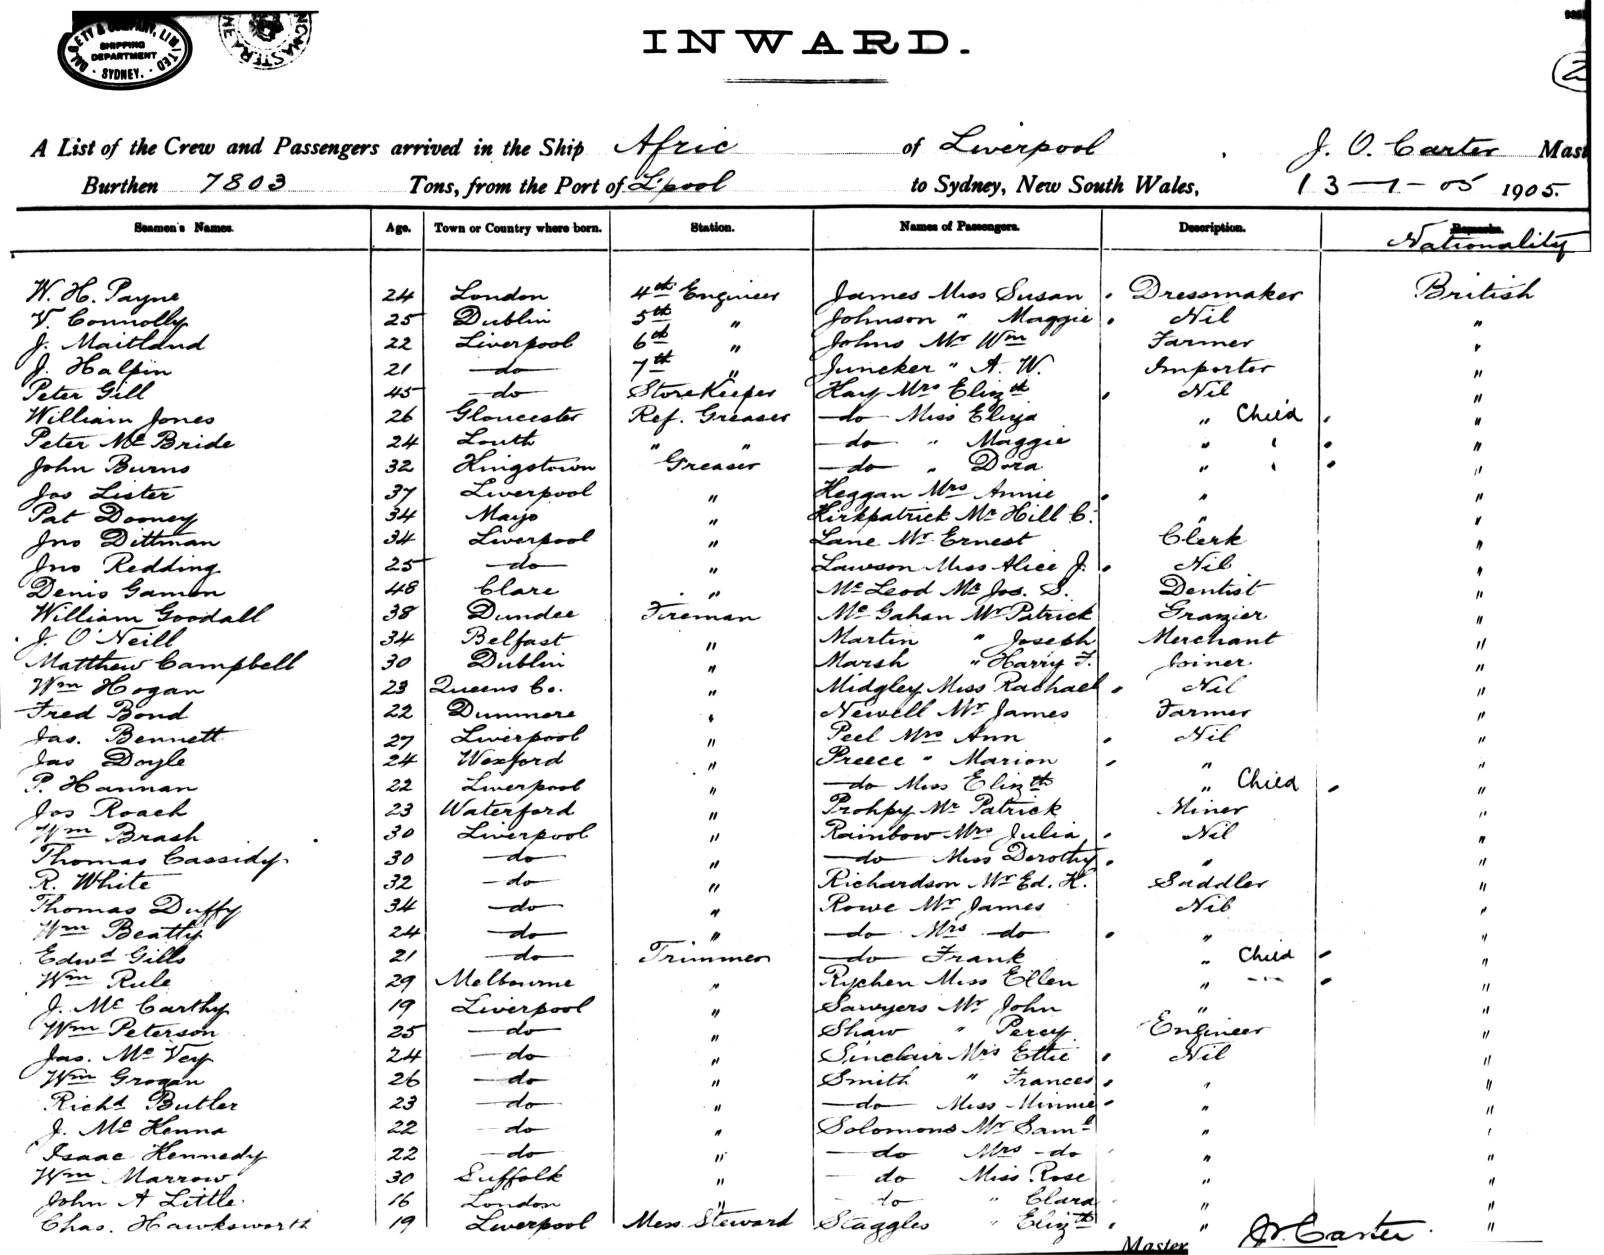 DALGETY & COMPANY, LIMITED
SHIPPING
DEPARTMENT
SYDNEY.
INWARD.
2
A List of the Crew and Passengers arrived in the Ship Afric of Liverpool , J. O. Carter Mast
Burthen 7803 Tons, from the Port of L'pool to Sydney, New South Wales, 13-1-05 1905.
Seamen's Names. Age. Town or Country where born. Station. Names of Passengers. Description. Remarks.
Nationality
W. H. Payne 24 London 4th Engineer James Miss Susan Dressmaker British
V. Connolly 25 Dublin 5th " Johnson " Maggie Nil "
J. Maitland 22 Liverpool 6th " Johns Mr Wm Farmer "
J. Halpin 21 —do— 7th " Juncker " A. W. Importer "
Peter Gill 45 —do— StoreKeeper Hay Mrs Elizth Nil "
William Jones 26 Gloucester Ref. Greaser —do— Miss Eliza " Child "
Peter Mc Bride 24 Louth " " —do— " Maggie " ' "
John Burns 32 Kingstown Greaser —do— " Dora " ' "
Jos Lister 37 Liverpool " Heggan Mrs Annie " "
Pat Dooney 34 Mayo " Kirkpatrick Mr Hill C. " "
Jno Dittman 34 Liverpool " Lane Mr Ernest Clerk "
Jno Redding 25 —do— " Lawson Miss Alice J. Nil "
Denis Gamon 48 Clare " Mc Leod Mr Jos. S. Dentist "
William Goodall 38 Dundee Fireman Mc Gahan Mr Patrick Grazier "
J. O'Neill 34 Belfast " Martin " Joseph Merchant "
Matthew Campbell 30 Dublin " Marsh " Harry F. Joiner "
Wm Hogan 23 Queens Co. " Midgley Miss Rachael Nil "
Fred Bond 22 Dunmore " Newell Mr James Farmer "
Jas. Bennett 27 Liverpool " Peel Mrs Ann Nil "
Jas Doyle 24 Wexford " Preece " Marion " "
P. Hannan 22 Liverpool " —do— Miss Elizth " Child "
Jos Roach 23 Waterford " Prohpy Mr Patrick Miner "
Wm Brash 30 Liverpool " Rainbow Mrs Julia Nil "
Thomas Cassidy 30 —do— " —do— Miss Dorothy " "
R. White 32 —do— " Richardson Mr Ed. H. Saddler "
Thomas Duffy 34 —do— " Rowe Mr James Nil "
Wm Beatty 24 —do— " —do— Mrs —do " "
Edwd Gills 21 —do— Trimmer —do— Frank " Child "
Wm Rule 29 Melbourne " Rychen Miss Ellen " --- "
J. Mc Carthy 19 Liverpool " Sawyers Mr John " "
Wm Peterson 25 —do— " Shaw " Percy Engineer "
Jas. Mc Vey 24 —do— " Sinclair Mrs Ettie Nil "
Wm Grogan 26 —do— " Smith " Frances " "
Richd Butler 23 —do— " —do— Miss Minnie " "
J. Mc Kenna 22 —do— " Solomons Mr Saml " "
Isaac Kennedy 22 —do— " —do Mrs —do " "
Wm Marrow 30 Suffolk " —do Miss Rose " "
John A Little 16 London " —do— " Clara " "
Chas. Hawksworth 19 Liverpool Mess Steward Staggles " Elizth " "
Master J. O. Carter